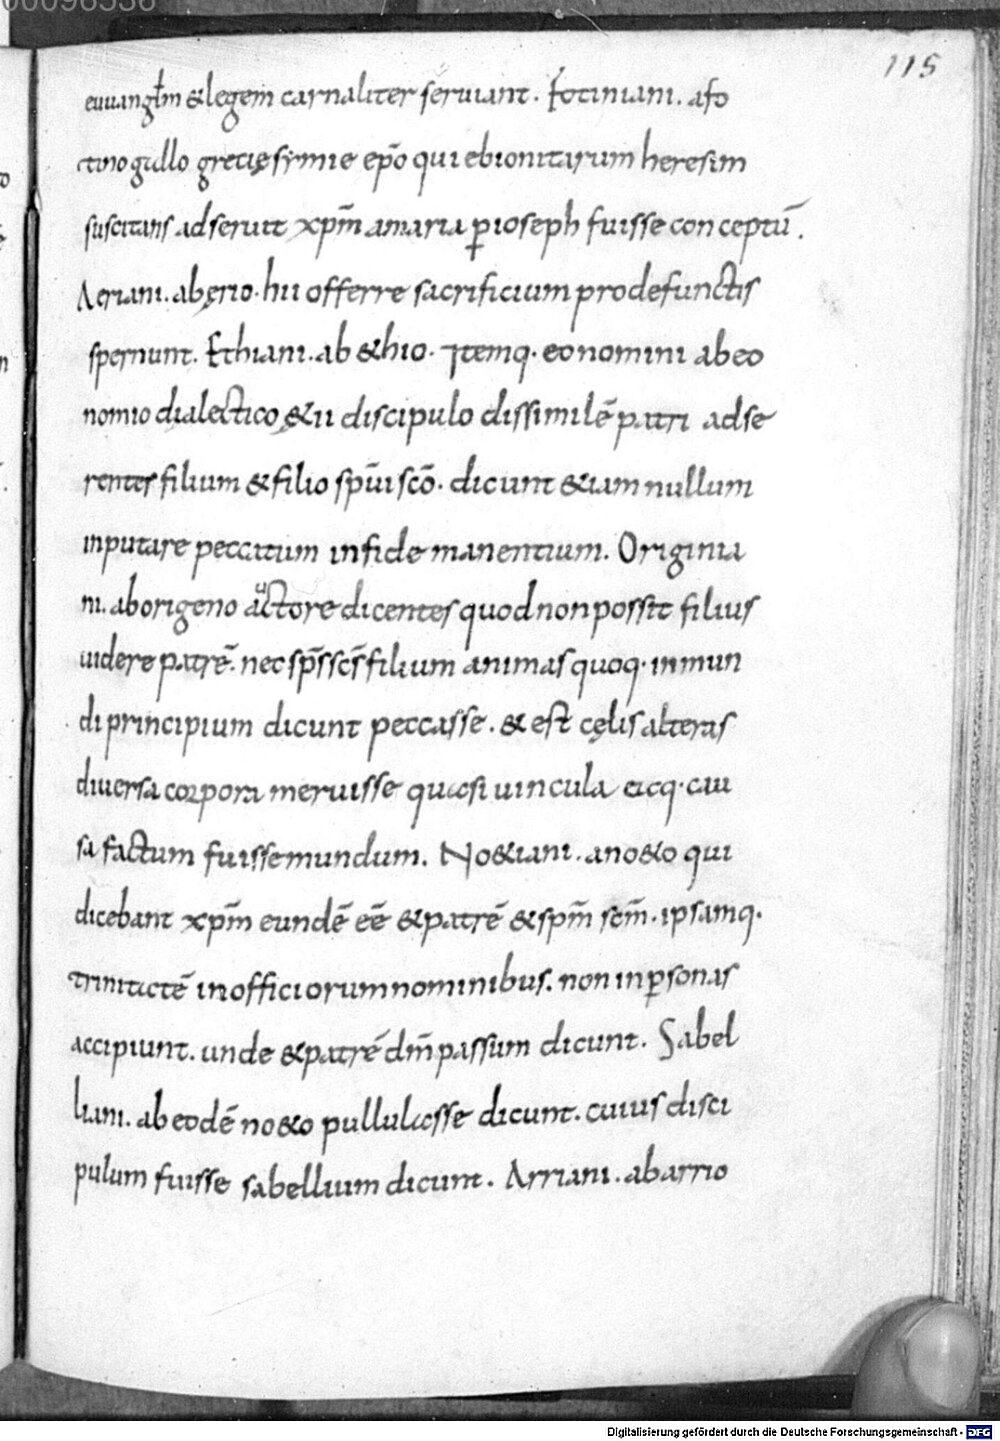 115
euuanglm̄ & legem carnaliter seruant. Fotiniani. afo
tino gallo grecię sirmie ep̄o qui ebionitarum heresim
suscitans adseruit xp̄m amaria p̱ ioseph fuisse conceptū.
Aeriani. ab ęrio. hii offerre sacrificium prodefunctis
spernunt. Ethiani. ab &hio. Itemq. eonomini ab eo
nomio dialectico &ii discipulo dissimilē patri adse
rentes filium & filio sp̄ui scō. dicunt &iam nullum
inputare peccatum infide manentium. Originia
ni. aborigeno auctore dicentes quod non possit filius
uidere patrē. nec sp̄s sc̄s filium animas quoq. inmun
di principium dicunt peccasse. & est cęlis alteras
diuersa corpora meruisse quasi uincula eicq. cau
sa factum fuisse mundum. No&iani. ano&o qui
dicebant xp̄m eundē eē & patrē & sp̄m sc̄m. ipsamq.
trinitatē inofficiorum nominibus. non inp̱sonas
accipiunt. unde & patrē dm̄ passum dicunt. Sabel
liani. ab eodē no&o pullulasse dicunt. cuius disci
pulum fuisse sabellium dicunt. Arriani. ab arrio
Digitalisierung gefördert durch die Deutsche Forschungsgemeinschaft - DFG